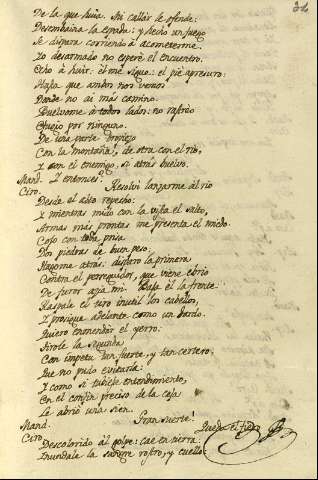 32
De la que huia. Mi callàr le ofende:
Desembaina la espada: y hecho un fuego
Se dispara corriendo à acometerme.
Yo desarmado no esperè el encuentro.
Echo à huir: èl me sigue: el pie apresuro:
Hasta que ambos nos vemos
Donde no ai mas camino.
Buelvome à todos lados: no rastrèo
Efugio por ninguno.
De una parte tropiezo
Con la montaña, de otra con el rio,
Y con el enemigo, si atràs buelvo.
Mand. Y entonces?
Ciro. Resolvì lanzarme al rio
Desde el alto repecho:
Y mientras mido con la vista el salto,
Armas mas prontas me presenta el miedo.
Cojo con toda prisa
Dos piedras de buen peso:
Hagome atràs: disparo la primera
Contra el perseguidor, que viene ebrio
De furor àzia mi. Baja èl la frente:
Raspale el tiro inutil los cabellos,
Y prosigue adelante como un dardo.
Quiero enmendàr el yerro:
Tirole la segunda
Con impetu tan fuerte, y tan certero,
Que no pudo evitarla:
Y como si tubiese entendimiento,
En el confin preciso de la ceja
Le abriò una sien.
Mand. Gran suerte!
Ciro. Quedò el fiero
Descolorido al golpe: cae en tierra:
Inundale la sangre rostro, y cuello: